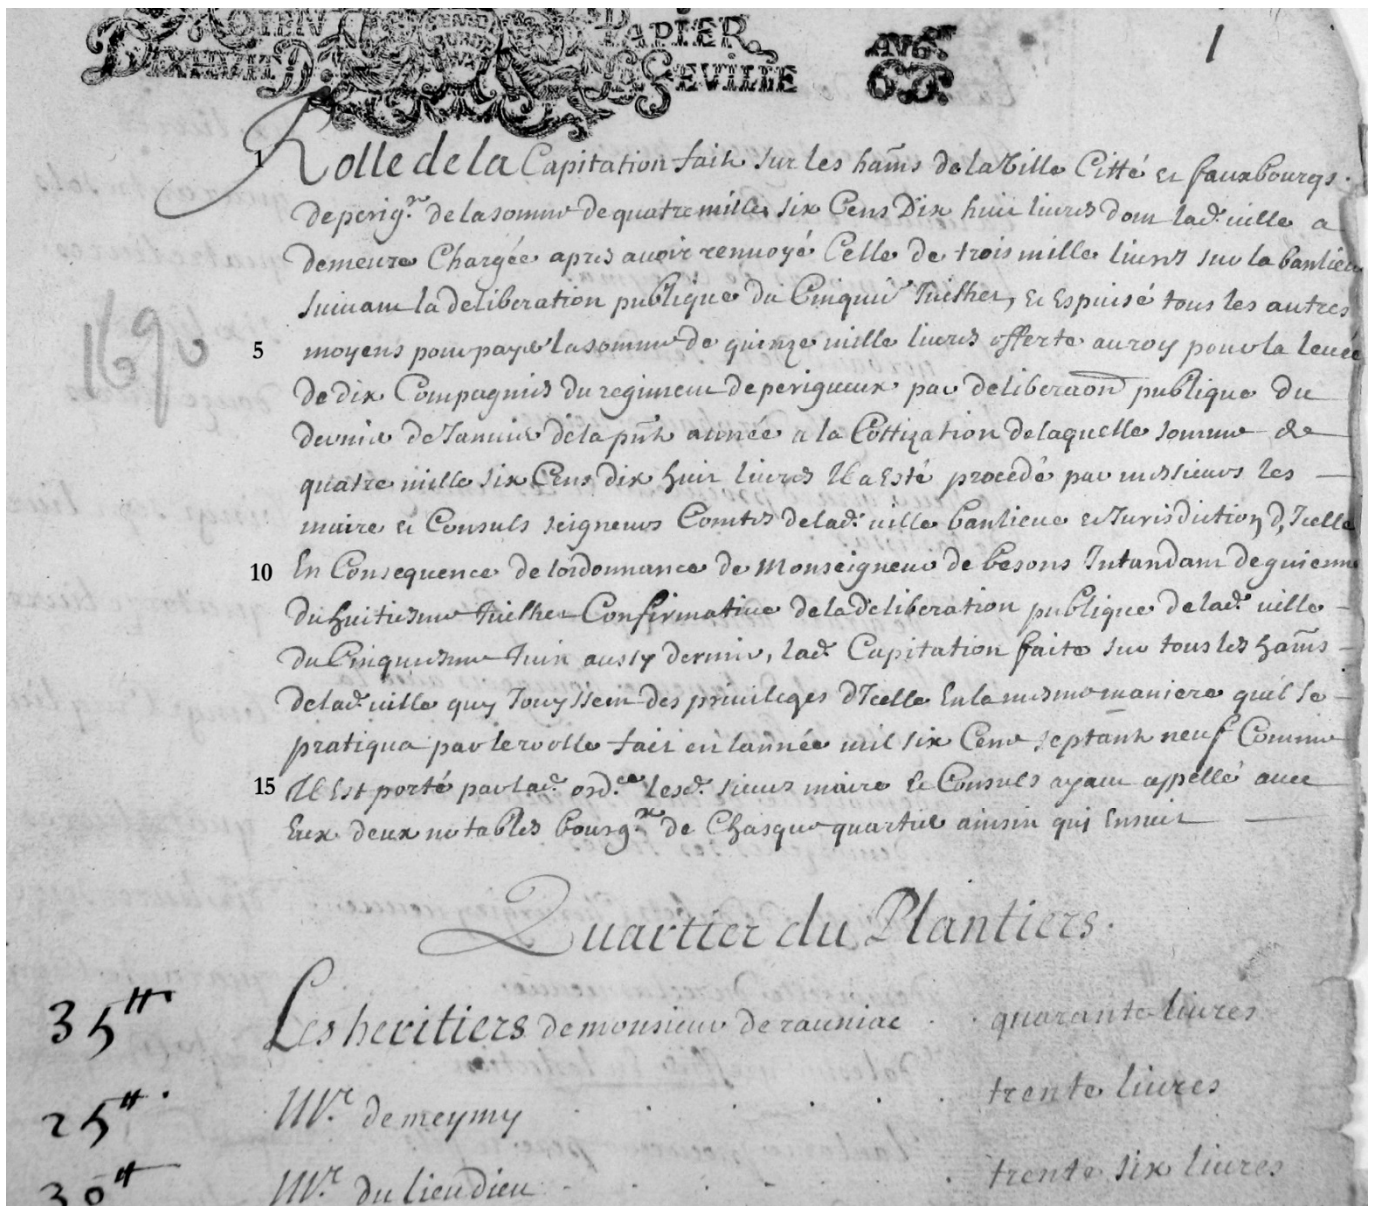 MOIEN PAPIER
D SEVILLE
1
Rolle de la Capitation fait sur les ham̃s de la Ville Citté et fauxbourgs.
de perig.x de la somme de quatre mille six Cens Dix huit livres dont lad. ville a
demeure Chargée apres avoir renvoyé Celle de trois mille livres sur la banlieu
suivant la deliberation publique du Cinquie Juilhet, et Espuisé tous les autres
5 moyens pour payer la somme de quinze mille livres offerte au roy pour la levée
de dix Compagnies du regiment de perigueux par deliberaõn publique du
dernier de Janvier de la pñte année a la Cottization de laquelle somme de
quatre mille six Cens dix huit livres Il a Esté procédé par messieurs les
maire et Consuls seigneurs Comtes de lad. ville banlieue et Jurisdiction d'Icelle
10 En Consequence de l'ordonnance de Monseigneur de besons Intandant de guienne
du huitiesme Juilhet Confirmative de la deliberation publique de lad. ville
du Cinquiesme Juin aussy dernier, lad. Capitation faite sur tous les ham̃s
de lad. ville quy Jouyssent des privileges d'Icelle En la mesme maniere quil se
pratiqua par le rolle fait en lannée mil six Cens septante neuf Comme
15 Il Est porté par lad. ord.ce lesd. sieurs maire et Consuls ayant appellé avec
Eux deux notables bourg.x de Chasque quartier ainsin qui Ensuit
1690
Quartier du Plantiers.
35tt Les heritiers de monsieur de rauniac . . quarante livres
25tt. Mr. de meymy . . . . . trente livres
30tt Mr. du lieu dieu . . . . trente six livres